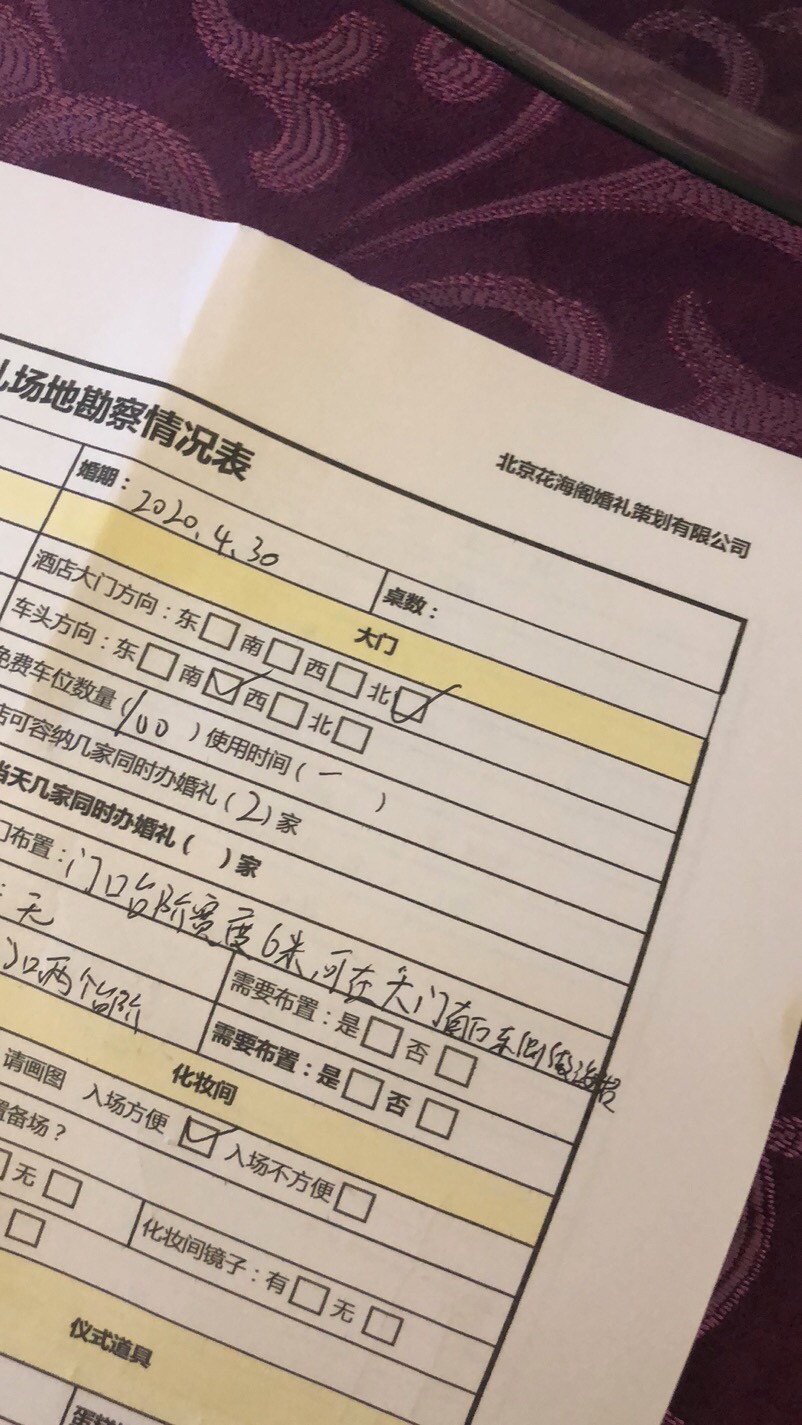 北京花海阁婚礼策划有限公司
礼场地勘察情况表
婚期：2020.4.30
桌数：
大门
酒店大门方向：东□ 南□ 西□ 北☑
车头方向：东□ 南☑ 西□ 北□
免费车位数量（100）使用时间（一）
店可容纳几家同时办婚礼（2）家
当天几家同时办婚礼（ ）家
门布置：门口台阶宽度6米，可在大门前东侧
：无
需要布置：是□ 否□
门口两个台阶
需要布置：是□ 否□
化妆间
请画图 入场方便☑ 入场不方便□
备场？
无□
化妆间镜子：有□ 无□
仪式道具
蛋糕